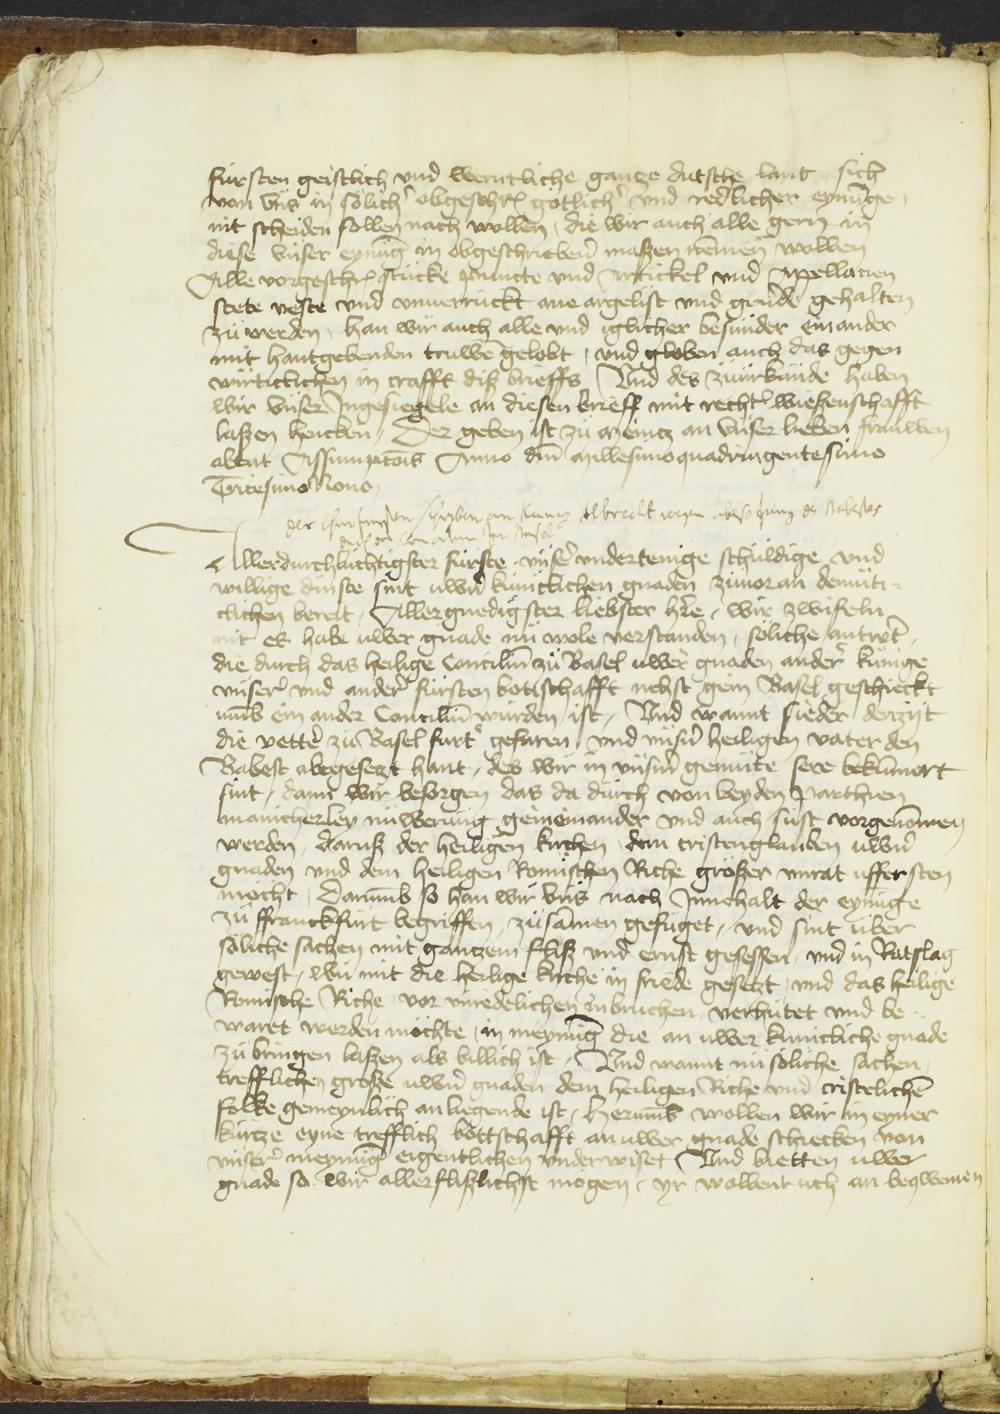 fursten geistlich vnd werntliche gantze dutsche lant sich
von vns in solich obgeschr gotlich vnd redlicher eynu̅ge,
nit scheiden sollen nach wollen, die wir auch alle gern in
diese vnser eynu̅g in obgeschriebe̅ maszen neme̅ wollen
Alle vorgeschr stucke puncte vnd Artickel vnd Appellacien
stete veste vnd vnuerruckt ane argelist vnd geu̅de gehalten
zu werden, han wir auch alle vnd iglicher besunder einander
mit hantgebenden truwe̅ gelobt, vnd globen auch das gegen
wirticlichen in crafft disz brieffs Vnd des zuurkunde haben
wir vnser Ingesiegele an diesen brieff mit recht wieszenschafft
laszen hencken, Der geben ist zu Meintz an vnser lieben frauwen
abent Assumptois Anno dm̅ millesimo quadringentesimo
Tricesimo Nono,
der churfursten schriben an kunig Albrecht wegen absetzung des Babestes
Allerdurchluchtigster furste vnser vndertenige schuldige vnd
willige dinste sint uwn̅ kuniclichen gnaden zuuor an demuti-
clichen bereit, Allergnedigster liebster h̅re, wir zwifeln
nit es habe uwer gnade nu wole verstanden, soliche antwt̅,
die durch das heilige Conciliu̅ zu Basel uwer gnaden ander kunige
vnser vnd ander fursten bottschafft nehst gein Basel geschickt
umb ein ander Conciliu̅ wurden ist, Vnd wannt sieder derzijt
die vetter zu Basel furt gefaren, vnd vnsn̅ heiligen vater den
Babest abegesetzt hant, des wir in vnsm̅ gemute sere bekummert
sint, dann wir besorgen das da durch von beyden Parthien
manicherley nuwerung geineinander vnd auch sust vorgenommen
werden, darusz der heiligen kirchen dem cristenglauben uwn̅
gnaden vnd dem heiligen Romischen Riche groszer vnrat uffersten
mocht, Darumb so han wir vns nach Innehalt der eynu̅ge
zu ffranckfurt begriffen, zusamen gefuget, vnd sint uber
soliche sachen mit gantzem flisz vnd ernst gesessen, vnd in Ratslag
gewest, wu mit die heilige kirche in friede gesetzt, vnd das heilige
Romische Riche vor vnredelichen inbruchen verhutet vnd be-
waret werden mochte, in meynu̅g die an uwer kunicliche gnade
zu bringen laszen als billich ist, Vnd wannt nu soliche sachen,
trefflichen grosze uwn̅ gnaden dem heiligen Riche vnd cristeliche̅
folke gemeynlich anliegende ist, Herumb wollen wir in eyner
kurtze eyne trefflich bottschafft an uwer gnade schicken von
vnser meynu̅g eigentlichen vnderwiset Vnd bietten uwer
gnade so wir allerfliszlichst mogen, yr wollent uch an beqwemen